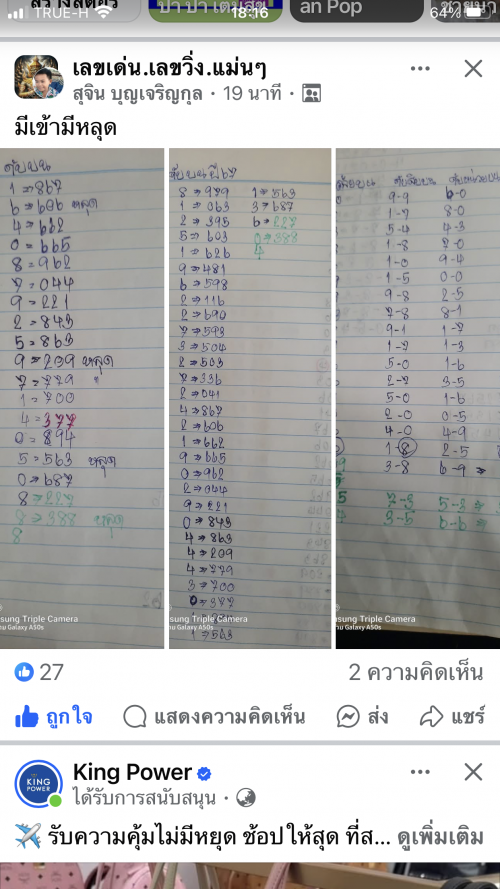 an Pop
TRUE-H
18:16
64%
เลขเด่น.เลขวิ่ง.แม่นๆ
สุจิน บุญเจริญกุล · 19 นาที ·
มีเข้ามีหลุด
1 → 867
6 → 606 หลุด
4 → 662
0 = 665
8 = 962
7 = 044
9 = 221
2 = 843
5 = 863
9 = 209 หลุด
7 = 779 "
1 = 700
4 = 377
0 = 894
5 = 563 หลุด
0 → 687
8 → 227
8 → 388 หลุด
8
8 → 979 1 → 563
1 → 063 3 → 687
2 → 395 6 → 227
5 → 603 0 → 388
1 → 626 4
9 → 481
6 → 598
2 → 116
2 → 690
7 → 593
3 → 504
2 → 503
7 → 336
2 → 041
4 → 867
2 → 606
1 → 662
9 → 665
0 → 962
2 → 044
9 → 221
0 → 843
4 → 863
4 → 209
4 → 779
3 → 700
0 → 377
1 → 563
9-9 6-0
1-7 8-0
5-4 4-3
1-8 2-0
1-0 9-4
1-5 0-0
9-8 2-5
7-8 8-1
9-1 1-7
1-7 1-3
5-0 1-6
2-7 3-5
5-0 1-6
2-0 0-5
4-0 4-9
1-8 2-5
3-8 6-9 →
7-3 5-3 →
3-5 6-6 →
sung Triple Camera
Galaxy A50s
sung Triple Camera
Galaxy A50s
sung Triple Camera
Galaxy A50s
27
2 ความคิดเห็น
ถูกใจ
แสดงความคิดเห็น
ส่ง
แชร์
KING POWER
King Power
ได้รับการสนับสนุน ·
รับความคุ้มไม่มีหยุด ช้อปให้สุด ที่ส... ดูเพิ่มเติม